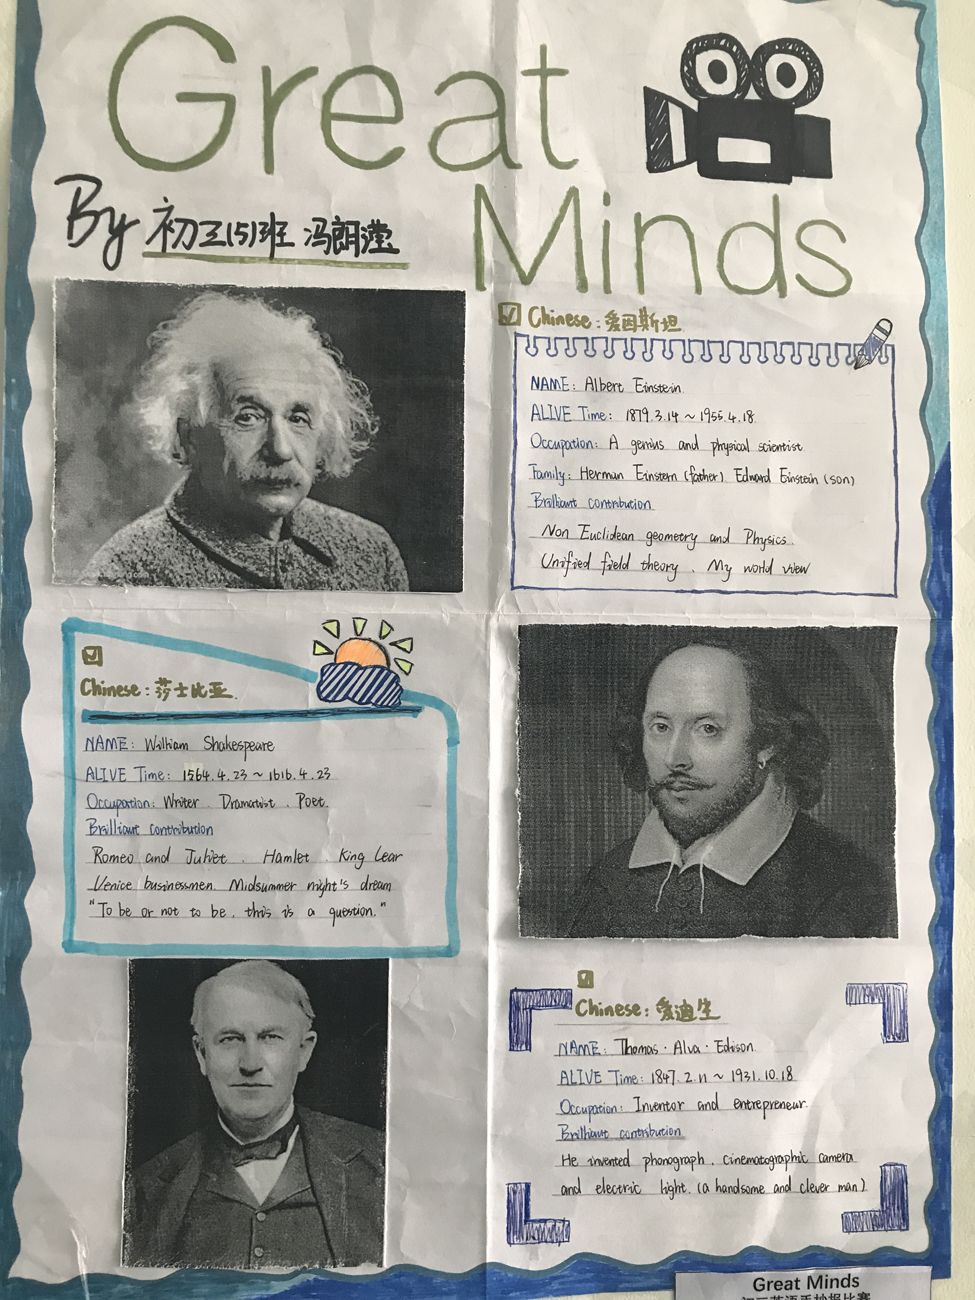 Great
Minds
By 初三(5)班 冯朗滢
Chinese: 爱因斯坦
NAME: Albert Einstein
ALIVE Time: 1879.3.14 ~ 1955.4.18
Occupation: A genius and physical scientist
Family: Herman Einstern (father) Edward Einstein (son)
Brilliant contribution
Non Euclidean geometry and Physics
Unified field theory . My world view
Chinese: 莎士比亚
NAME: William Shakespeare
ALIVE Time: 1564.4.23 ~ 1616.4.23
Occupation: Writer . Dramatist . Poet.
Brilliant contribution
Romeo and Juliet . Hamlet . King Lear
Venice businessmen. Midsummer night's dream
"To be or not to be, this is a question."
Chinese: 爱迪生
NAME: Thomas · Alva · Edison
ALIVE Time: 1847.2.11 ~ 1931.10.18
Occupation: Inventor and entrepreneur.
Brilliant contribution
He invented phonograph . cinematographic camera
and electric light. (a handsome and clever man)
Great Minds
初三英语手抄报比赛